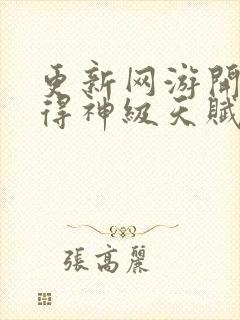 更新网游開
得神級天賦
張高麗